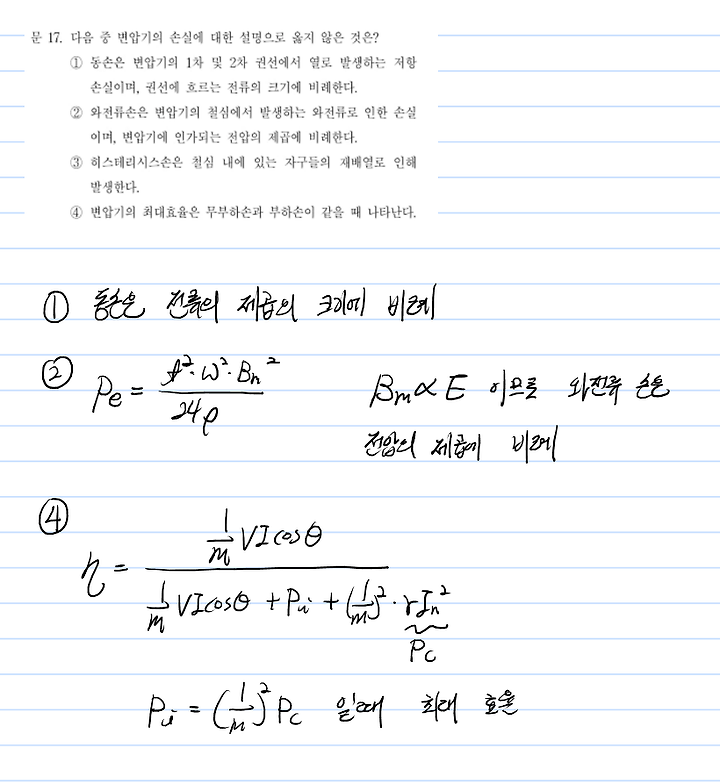 문 17. 다음 중 변압기의 손실에 대한 설명으로 옳지 않은 것은?
① 동손은 변압기의 1차 및 2차 권선에서 열로 발생하는 저항
손실이며, 권선에 흐르는 전류의 크기에 비례한다.
② 와전류손은 변압기의 철심에서 발생하는 와전류로 인한 손실
이며, 변압기에 인가되는 전압의 제곱에 비례한다.
③ 히스테리시스손은 철심 내에 있는 자구들의 재배열로 인해
발생한다.
④ 변압기의 최대효율은 무부하손과 부하손이 같을 때 나타난다.
① 동손은 전류의 제곱의 크기에 비례
② Pe = t²·ω²·Bn² / 24ρ Bm∝E 이므로 와전류 손은
전압의 제곱에 비례
④ η = 1/m VI cosθ / 1/m VI cosθ + Pi + (1/m)²·rIn²
Pc
Pi = (1/m)² Pc 일때 최대 효율